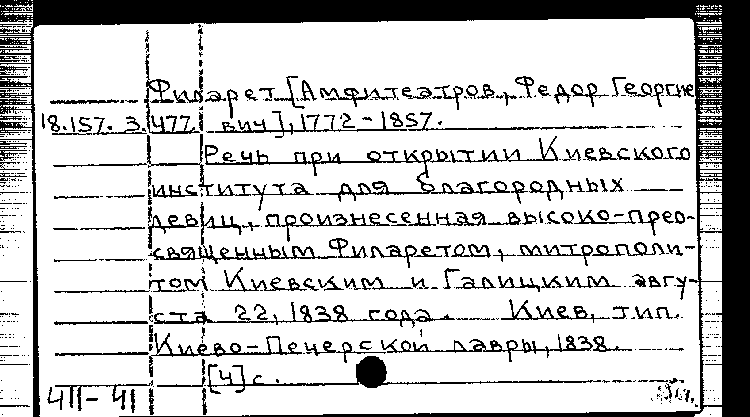 Филарет [Амфитеатров, Федор Георгие
18.157.3.477. вич], 1772-1857.
Речь при открытии Киевского
института для благородных
девиц, произнесенная высоко-прео-
священным Филаретом, митрополи-
том Киевским и Галицким авгу-
ста 22, 1838 года. Киев, тип.
Киево-Печерской лавры, 1838.
[4] с.
411-41